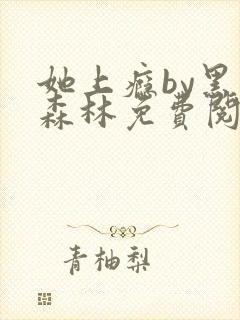 她上瘾by黑
森林免费阅
青柚梨